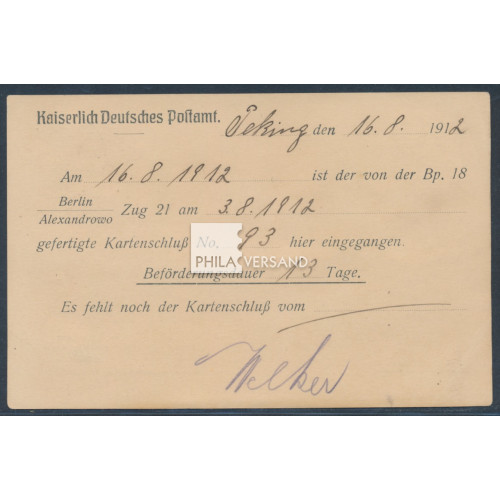 Kaiserlich Deutsches Postamt.
Peking den 16. 8. 1912
Am 16. 8. 1912 ist der von der Bp. 18
Berlin
Alexandrowo Zug 21 am 3. 8. 1912
gefertigte Kartenschluß No. 93 hier eingegangen.
PHILA VERSAND
Beförderungsdauer 13 Tage.
Es fehlt noch der Kartenschluß vom
Welker